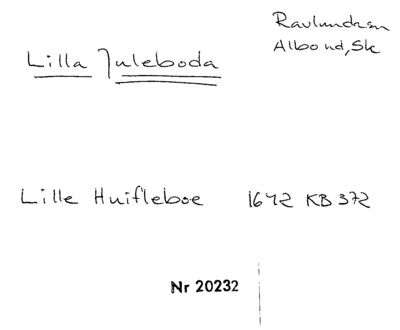 Ravlunda sn
Albo hd, Sk
Lilla Juleboda
Lille Huifleboe 1642 KB 372
Nr 20232